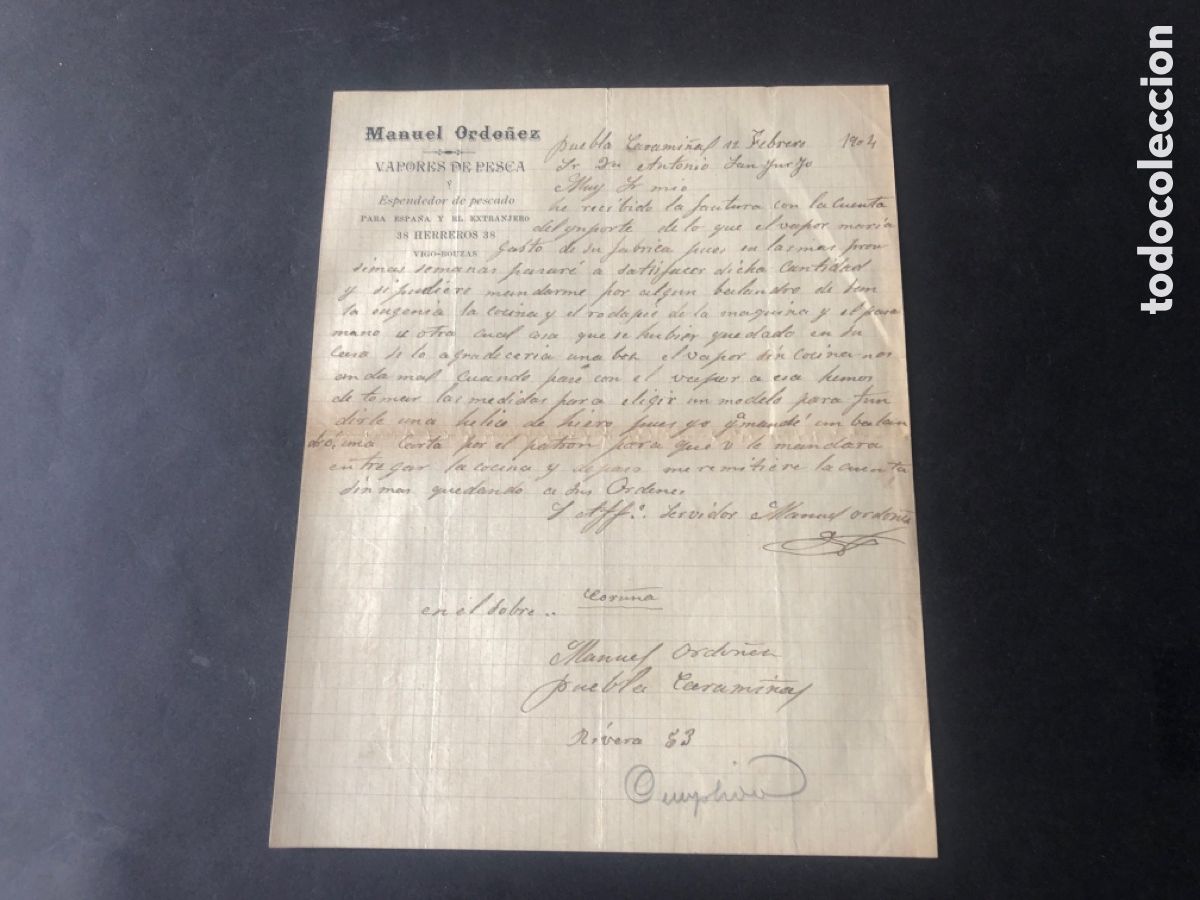 Manuel Ordoñez
VAPORES DE PESCA
Y
Espendedor de pescado
PARA ESPAÑA Y EL EXTRANJERO
38 HERREROS 38
VIGO-BOUZAS
puebla Caramiñal 12 Febrero 1904
Sr Dn Antonio San Jurjo
Muy Sr mio
he recibido la fautura con la cuenta
del ynporte de lo que el vapor maria
gasto de su fabrica pues en las mas prow
simas semanas pasaré a satisfacer dicha cantidad
y si pudiere mandarme por algun balandro de ben
la eugenia la cocina y el rodapié de la maquina y el pasa
mano u otra cual cosa que se hubier quedado en su
casa se lo agradeceria una bez el vapor sin cocina nos
anda mal cuando pasé con el vapor a esa hemos
de tomar las medidas para eligir un modelo para fun
dirle una helice de hiero pues yo mandé un balan
dro, una carta por el patron para que v le mandara
entregar la cocina y de paso me remitiere la cuenta
sin mas quedando a sus Ordenes
S Aff.º Servidor Manuel Ordoñez
en el sobre..
Coruña
Manuel Ordoñez
puebla Caramiñal
Rivera 53
todocoleccion